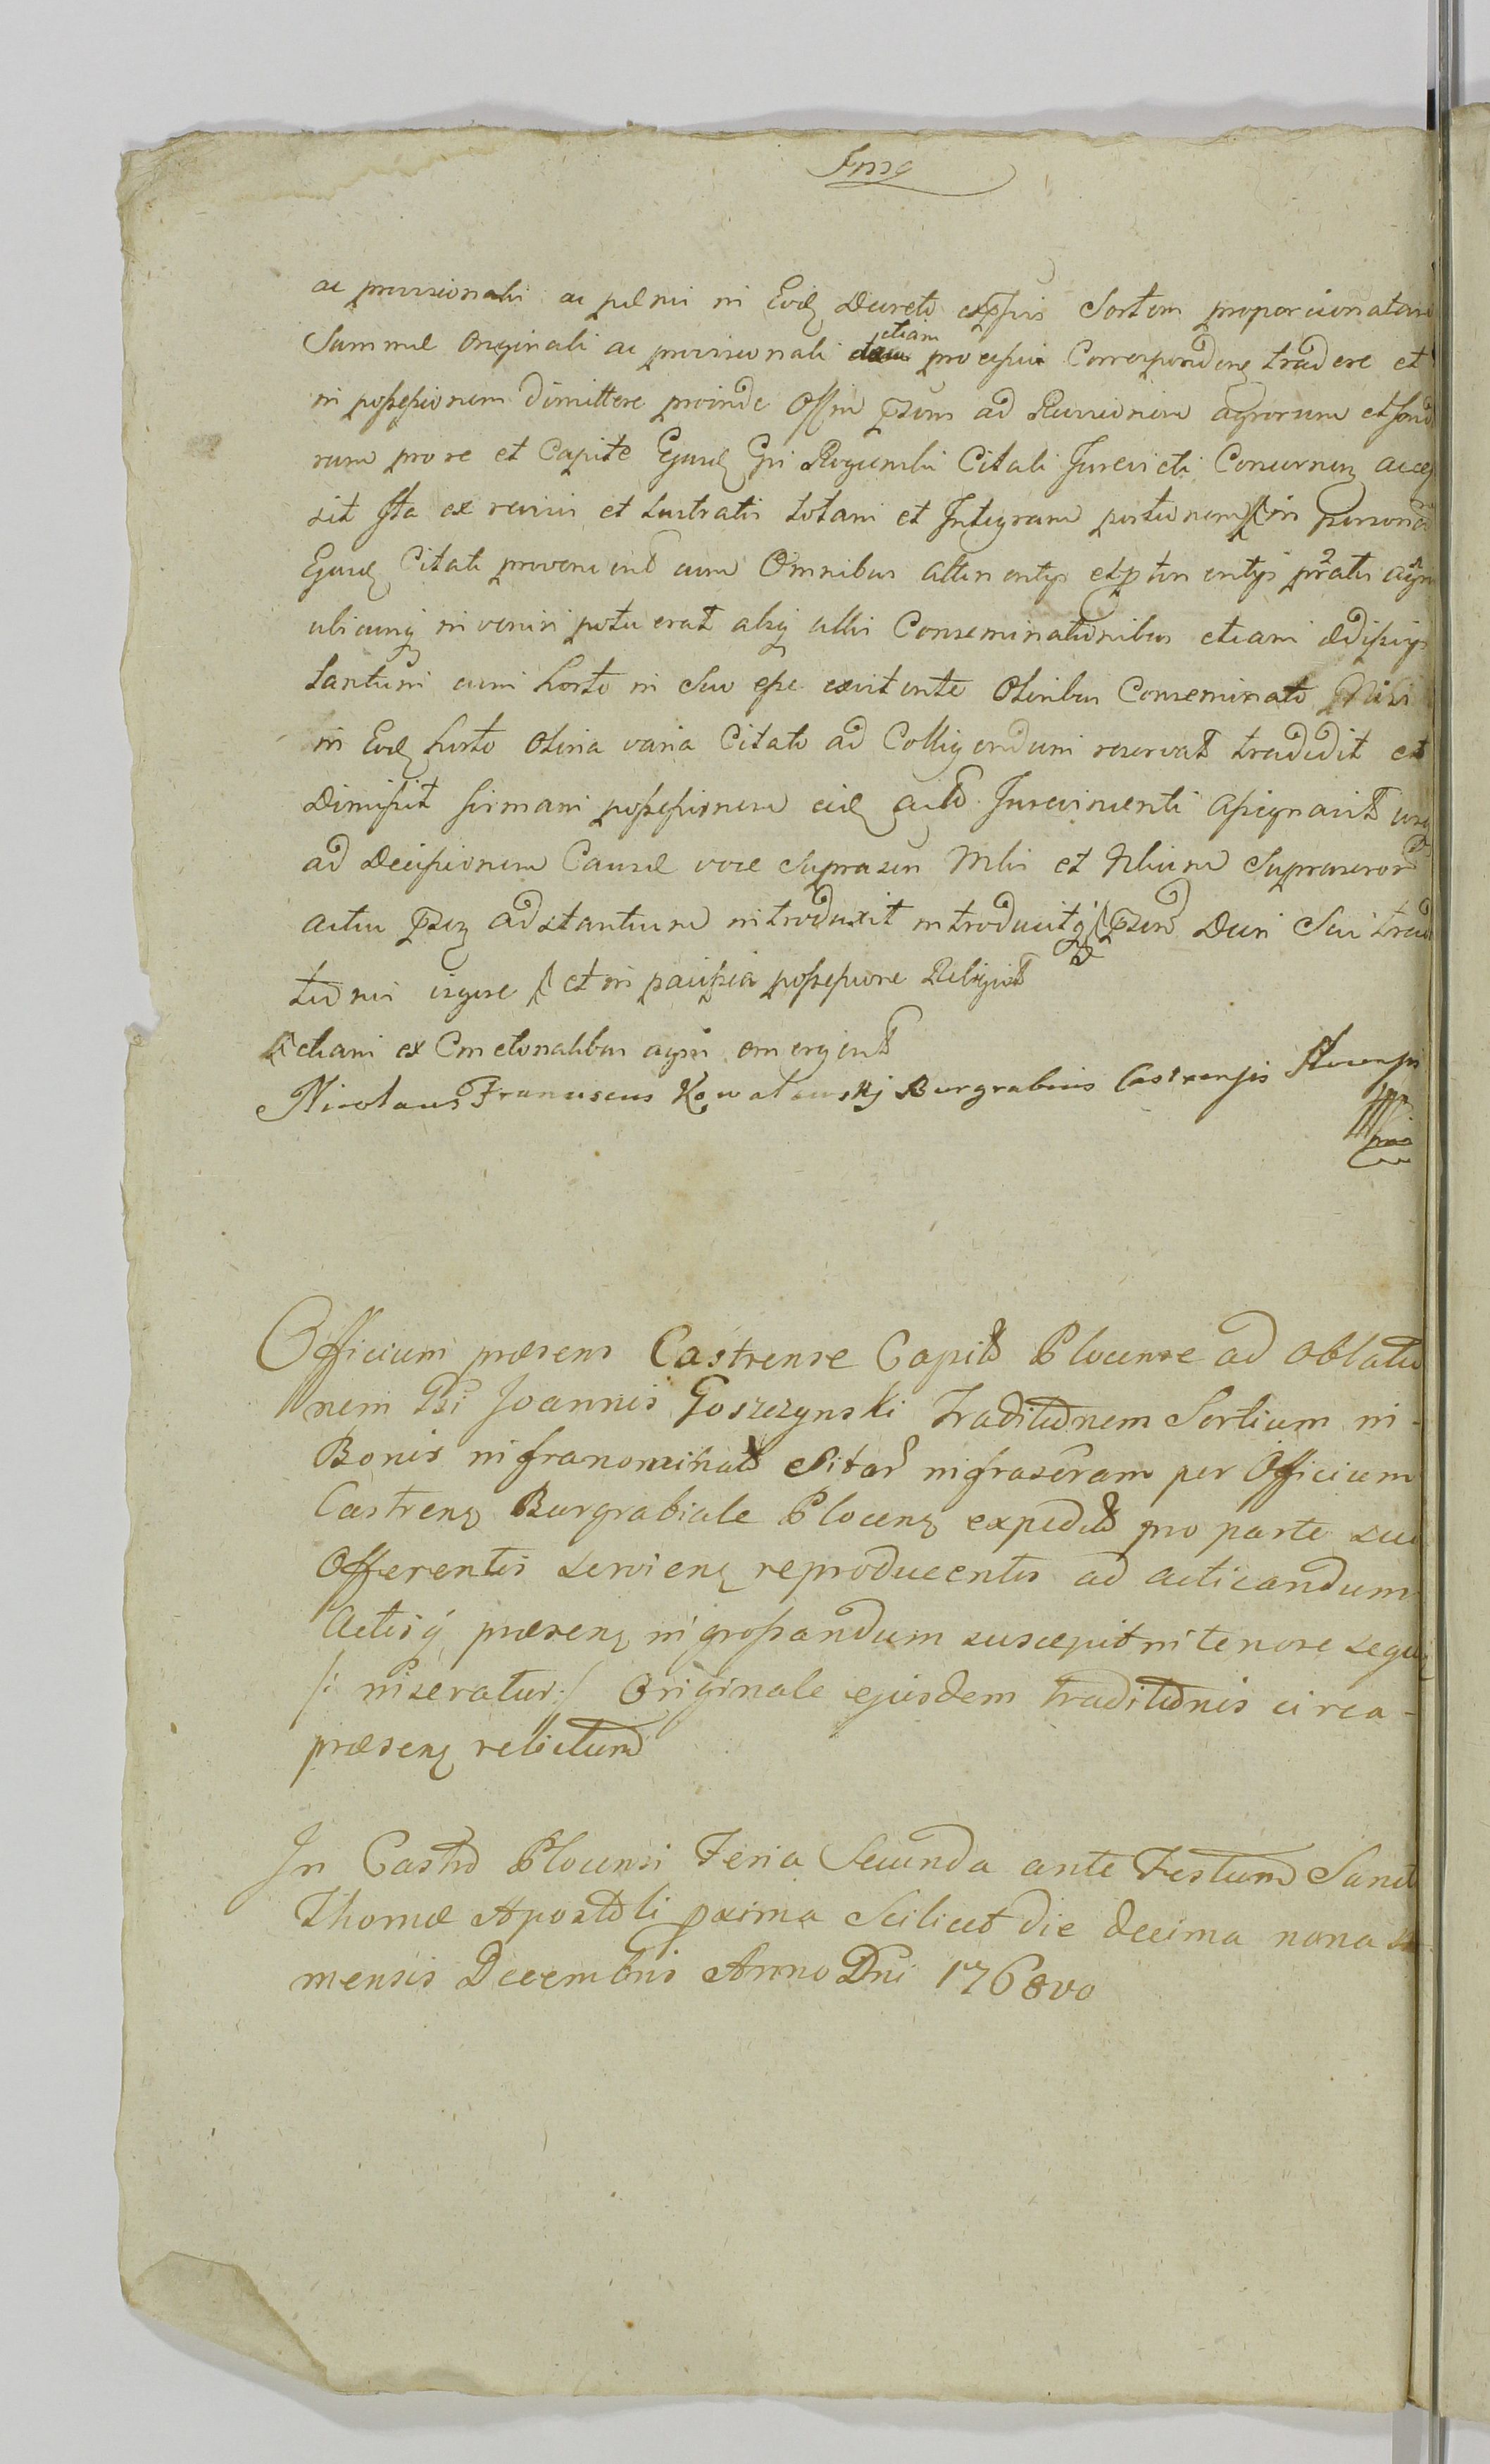 ac provisionali ac pœnis in Eod Decreto exppis Sortem proporcionatam
Summæ Originali ac provisionali etiam pro Correspondeng tradere et
in possessionem dimittere proinde Offm ad Revisionem agrorum et fund
rum pro re et Capite Ejusd Gsi Citati Jurevicti Concernen acces
sit Ita ex revisis et lustratis totam et Integram portionem in persona
Ejusd Citati provenient cum Omnibus attinentys et ptinentys pratis
ubicunq inveniri potuerat absq ullis Conseminationibus etiam ædifieys
tantum cum horto in suo esse existente Oleribus Conseminato Nisi
in Eod horto Oleria varia Citato ad Colligendum reservat tradidit et
Dimisit firmam possessionem eid Jurevincenti assignavit usq
ad Decisionem Causæ voce Suprascr Mlis et Nblium Suprascror
actui adstantium introduxit introducitq Sui tradi
tionis vigore et in pacifica possessione Reliquit
etiam ex Cmetonalibus agris emergent
Nicolaus Franciscus Kowalewskj Burgrabius Castrensis Plocensis
mpp
Officium præsens Castrense Capitt Plocense ad Oblatio
nem Gsi Joannis Goszczynski Traditionem Sortium in
Bonis infranominatt Sitar infrascram per Officium
Castrens Burgrabiale Plocens expeditt pro parte sui
Offerentis serviens reproducentis ad acticandum
Actisq præsens ingrossandum suscepit in tenore sequ
/: inseratur :/ Originale ejusdem traditionis circa
præsens relictum
In Castro Plocensi Feria Secunda ante Festum Sanct
Thomæ Apostoli pxima Scilicet die decima nona
mensis Decembris Anno Dni 1768vo